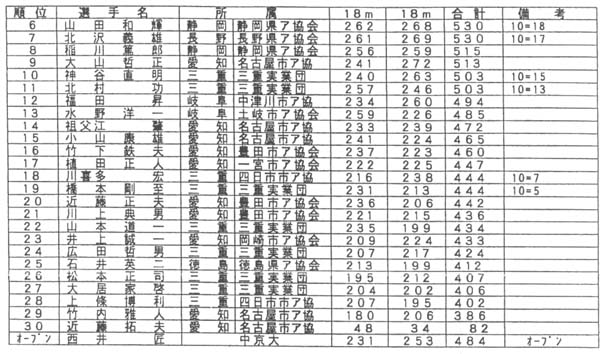 順位 選手名 所属 18m 18m 合計 備考
6 山田和輝 静岡 静岡県ア協会 262 268 530 10=18
7 北沢義雄 長野 長野県ア協会 261 269 530 10=17
8 稲川篤郎 静岡 静岡県ア協会 256 259 515
9 大山哲正 愛知 名古屋市ア協 241 272 513
10 神谷直明 三重 三重実業団 240 263 503 10=15
11 北村功 三重 三重実業団 257 246 503 10=13
12 福田昇 岐阜 中津川市ア協 234 260 494
13 水野洋一 岐阜 土岐市ア協会 259 226 485
14 祖父江肇 愛知 名古屋市ア協 233 239 472
15 小山康雄 愛知 名古屋市ア協 241 224 465
16 竹下鉄夫 愛知 豊田市ア協会 237 223 460
17 植田正人 愛知 一宮市ア協会 222 225 447
18 川喜多宏 三重 四日市市ア協 216 238 444 10=7
19 橋本剛至 三重 三重実業団 231 213 444 10=5
20 近藤正夫 愛知 豊田市ア協会 236 206 442
21 川上典男 愛知 豊田市ア協会 221 215 436
22 山本道一 三重 三重実業団 235 199 434
23 井上誠一 愛知 岡崎市ア協会 209 224 433
24 広田哲男 三重 三重実業団 207 217 424
25 石井英二 徳島 徳島県ア協会 213 199 412
26 松本正司 三重 三重実業団 195 212 407
27 大居家啓 三重 三重実業団 204 202 406
28 上條博利 三重 四日市市ア協 207 195 402
29 竹内雅人 愛知 名古屋市ア協 180 206 386
30 近藤拓夫 愛知 名古屋市ア協 48 34 82
オープン 西井匠 中京大 231 253 484 オープン